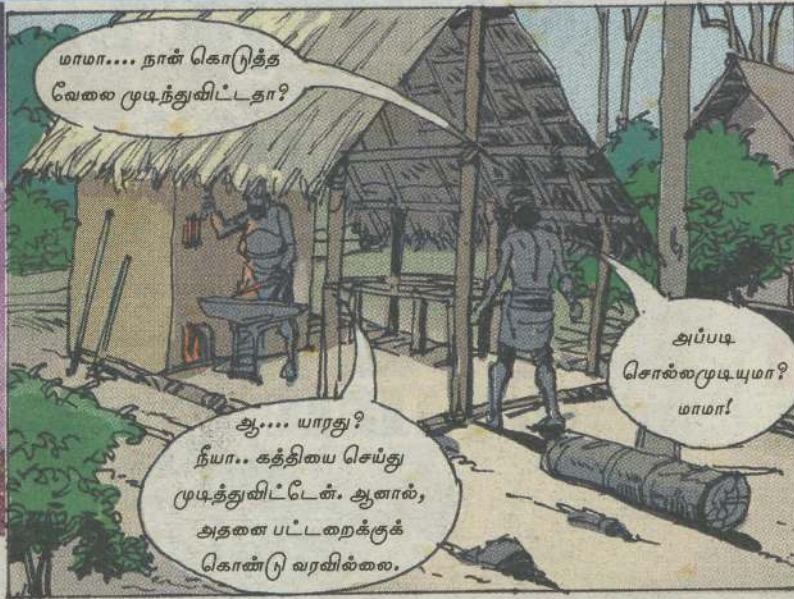 மாமா.... நான் கொடுத்த
வேலை முடிந்துவிட்டதா?
ஆ.... யாரது?
நீயா.. கத்தியை செய்து
முடித்துவிட்டேன். ஆனால்,
அதனை பட்டறைக்குக்
கொண்டு வரவில்லை.
அப்படி
சொல்லமுடியுமா?
மாமா!